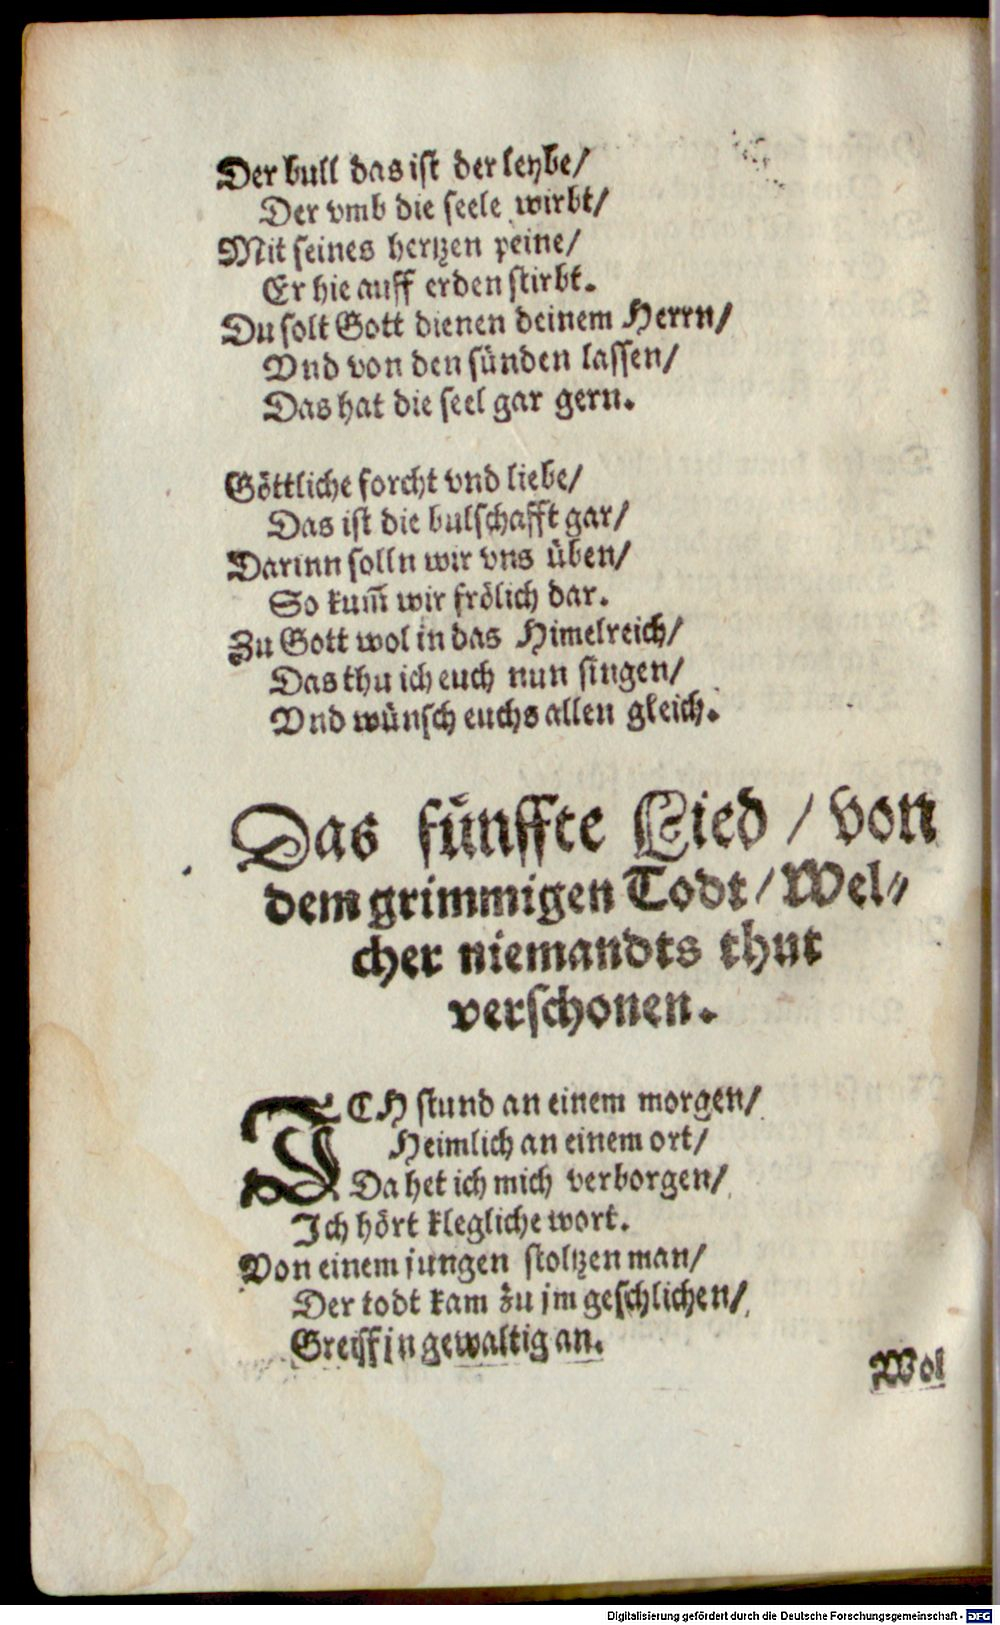 Der bull das ist der leybe/
Der vmb die seele wirbt/
Mit seines hertzen peine/
Er hie auff erden stirbt.
Du solt Gott dienen deinem Herrn/
Vnd von den sünden lassen/
Das hat die seel gar gern.
Göttliche forcht vnd liebe/
Das ist die bulschafft gar/
Darinn solln wir vns üben/
So kum̃ wir frölich dar.
Zu Gott wol in das Himelreich/
Das thu ich euch nun singen/
Vnd wünsch euchs allen gleich.
Das fünffte Lied / von
dem grimmigen Todt / Wel⸗
cher niemandts thut
verschonen.
ICH stund an einem morgen/
Heimlich an einem ort/
Da het ich mich verborgen/
Ich hört klegliche wort.
Von einem jungen stoltzen man/
Der todt kam zu jm geschlichen/
Greiff jn gewaltig an.
Wol
Digitalisierung gefördert durch die Deutsche Forschungsgemeinschaft - DFG